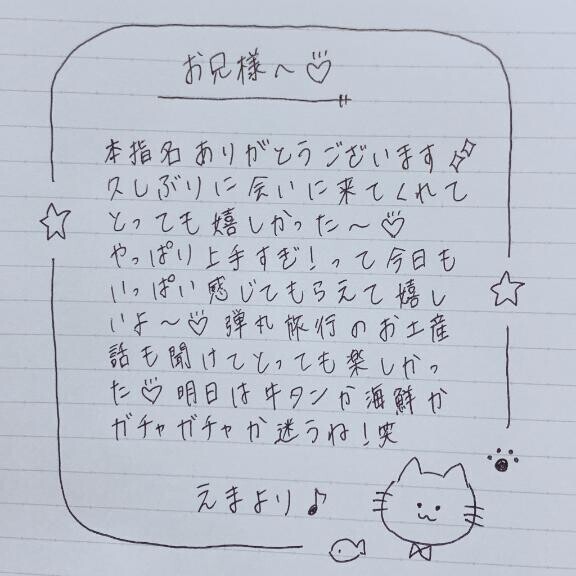 お兄様〜♡
本指名ありがとうございます
久しぶりに会いに来てくれて
とっても嬉しかった〜♡
やっぱり上手すぎ!って今日も
いっぱい感じてもらえて嬉し
いよ〜♡弾丸旅行のお土産
話も聞けてとっても楽しかっ
た♡明日は牛タンか海鮮か
ガチャガチャか迷うね!笑
えまより♪